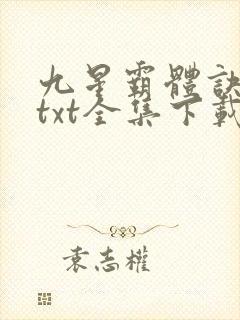 九星霸體訣
txt全集下載
袁志權